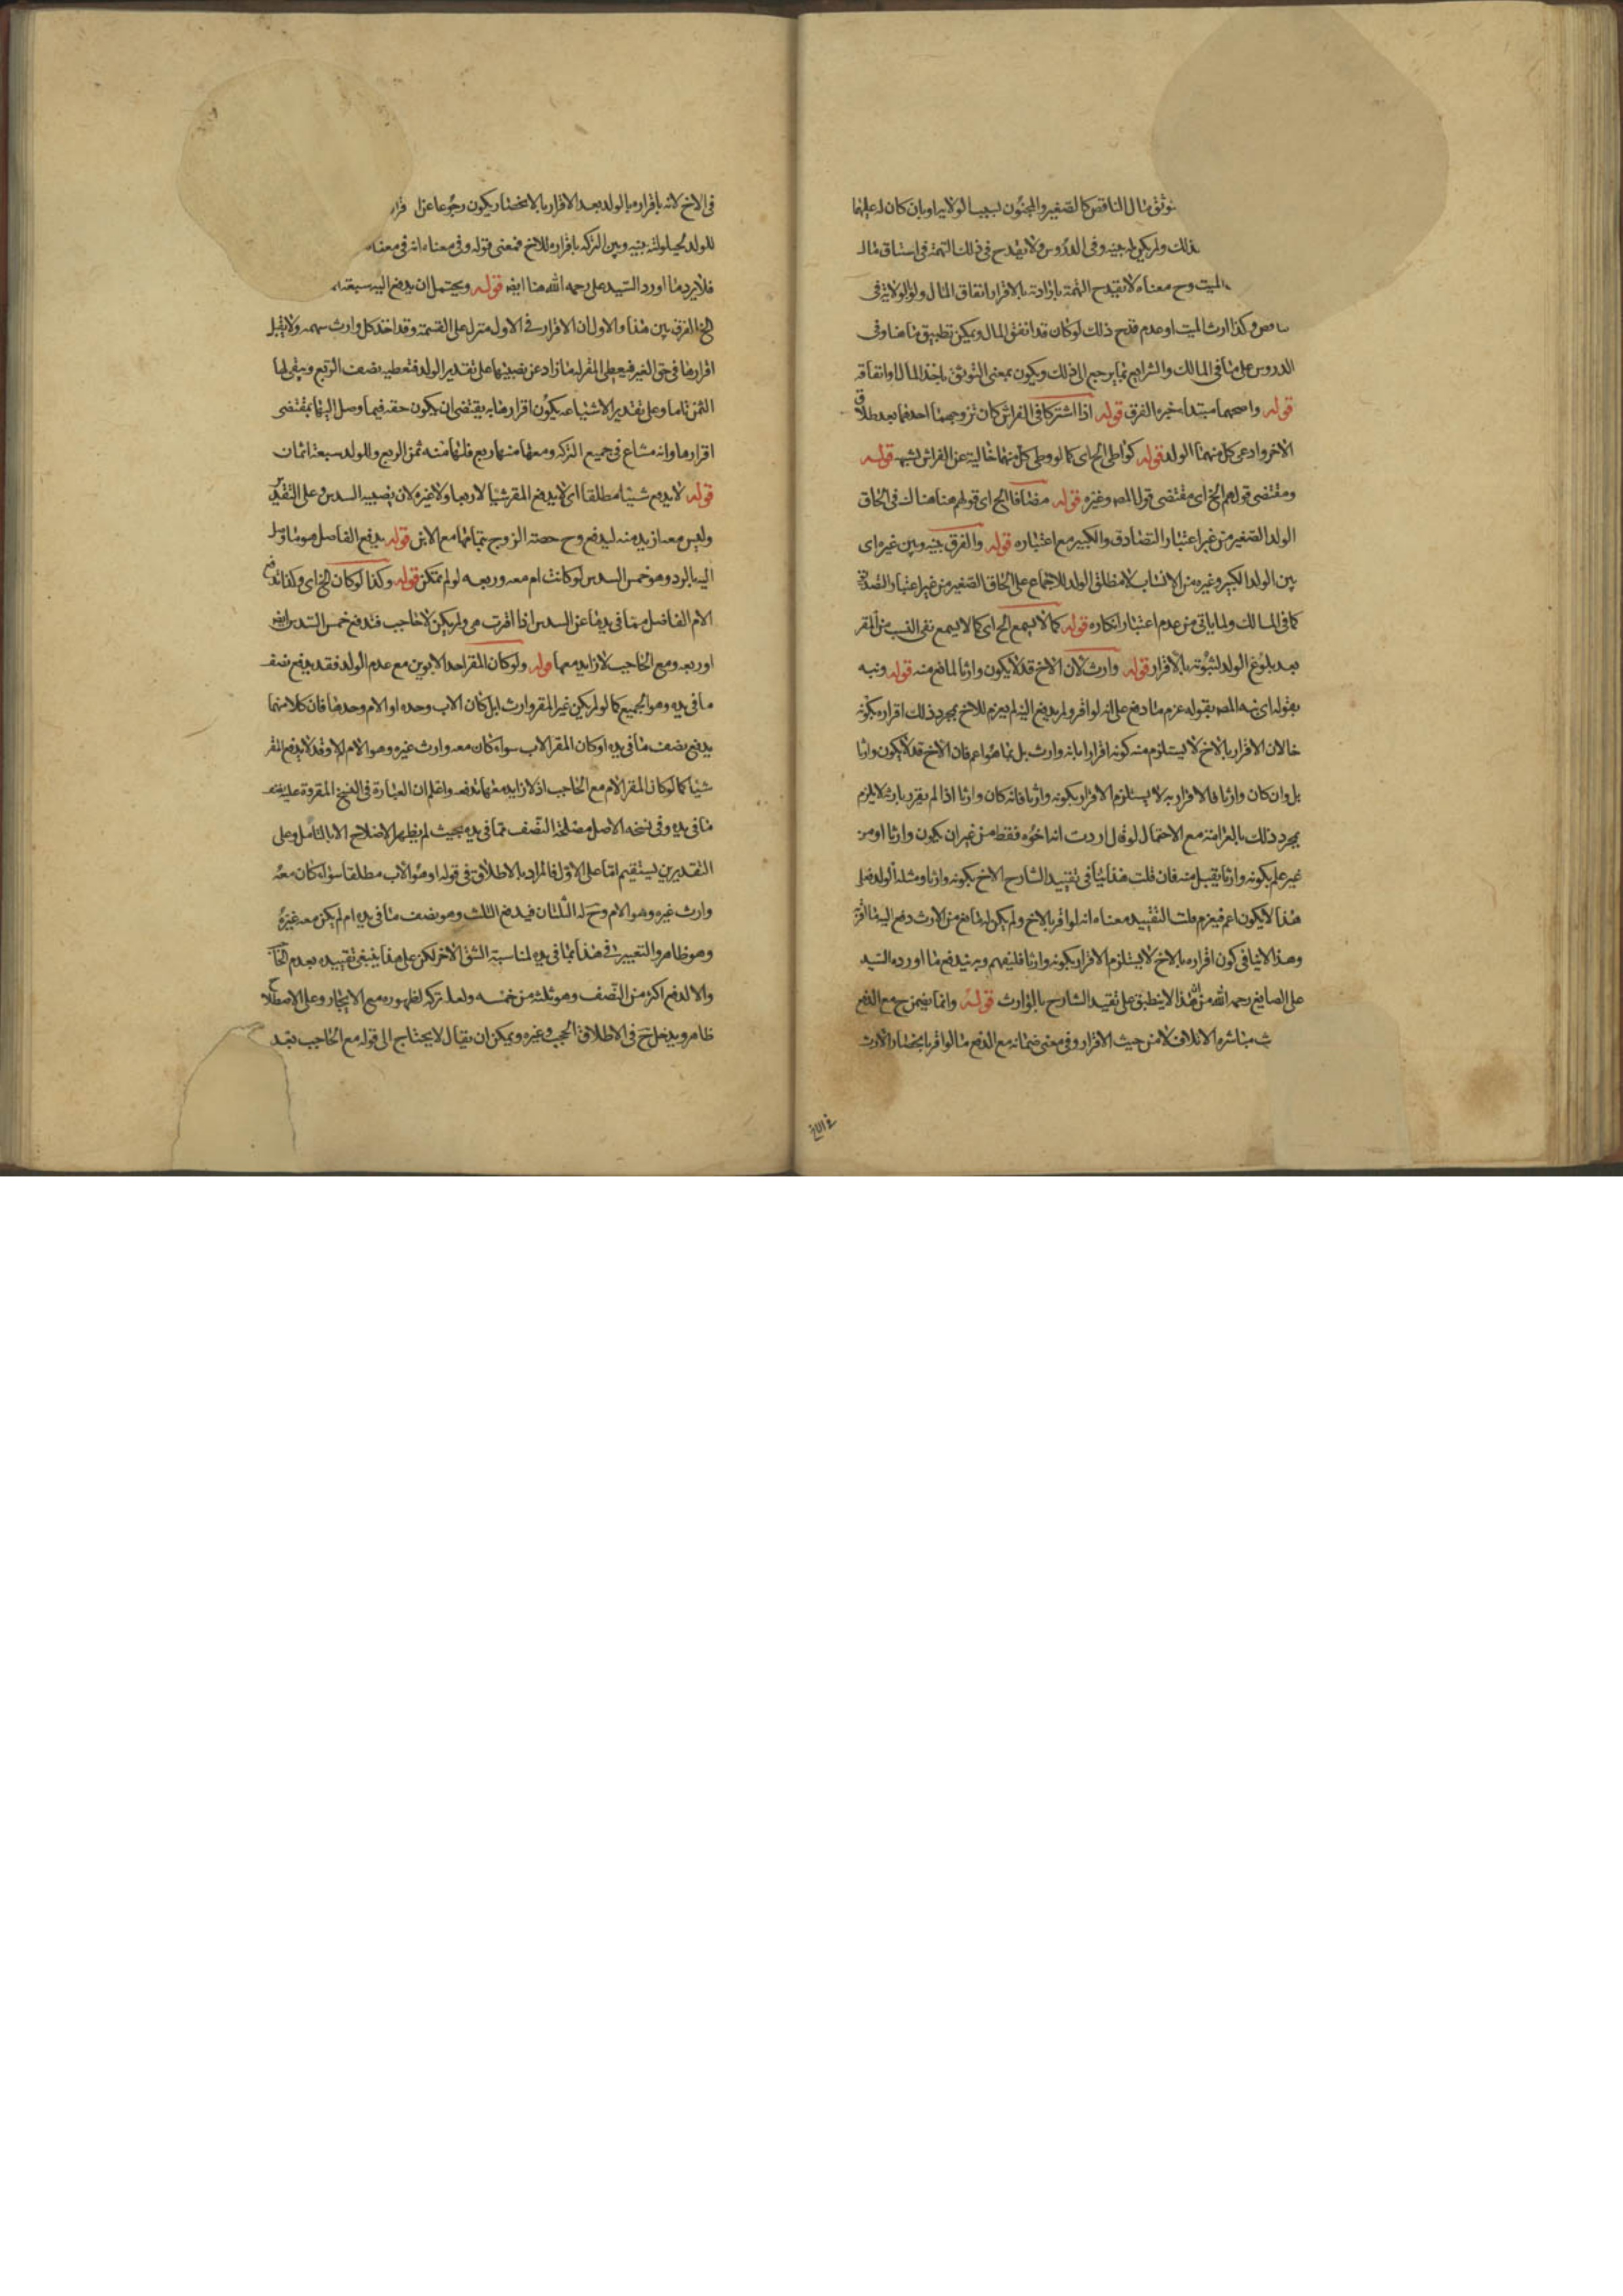 توثق مال الناقص كالصغير والمجنون بسبب الولاية او بان كان له عليهما
ذلك ولم يكن له بينه وفى الدروس ولا يقدح فى ذلك التهمة فى استاق مال
الميت وح معناه لا تقدح التهمة بارادته بالاقرار انفاق المال ولو لولاية فى
وكذا ارث الميت او عدم قدح ذلك لو كان قد انفق المال ويمكن تطبيق ما هنا وفى
الدروس على ما فى المسالك والشرايع بما يرجع الى ذلك ويكون بمعنى التوثق باخذ المال او انفاقه
قوله واصحهما مبتدا خبره الفرق قوله اذا اشتركا فى الفراش كان تزوجها احدهما بعد طلاق
الاخر وادعى كل منهما الولد قوله كواطى الخ اى كما لو وطى كل منهما خالية عن الفراش لشبهة قوله
ومقتضى قولهم الخ اى مقتضى قول المص وغيره قوله مضافا الخ اى قولهم هنا هناك فى الحاق
الولد الصغير من غير اعتبار التصادق والكبير مع اعتباره قوله والفرق بينه وبين غيره اى
بين الولد الكبير وغيره من الانساب لا مطلق الولد للاجماع على الحاق الصغير من غير اعتبار التصادق
كما فى المسالك ولما ياتى من عدم اعتبار انكاره قوله كما لا يسمع الخ اى كما لا يسمع نفى النسب من المقر
بعد بلوغ الولد لثبوته بالاقرار قوله وارث لان الاخ قد لا يكون وارثا لمانع منه قوله ونبه
بقوله اى نبه المص بقوله غرم ما دفع على انه لو اقر ولم يدفع اليه لم يغرم للاخ بمجرد ذلك اقراره بكونه
خالان الاقرار بالاخ لا يستلزم منه كونه اقرارا بانه وارث بل بما هو اعم فان الاخ قد لا يكون وارثا
بل وان كان وارثا فالاقرار به لا يستلزم الاقرار بكونه وارثا فانه كان وارثا اذا لم يقر بارثه لا يلزم
بمجرد ذلك بالغرامة مع الاحتمال لو قال اردت انه اخوه فقط من غير ان يكون وارثا او من
غير علم بكونه وارثا يقبل منه فان قلت هذا ينافى تقييد الشارح الاخ بكونه وارثا ومثله الولد فعلى
هذا لا يكون اعم فيغرم قلت التقييد معناه انه لو اقر بالاخ ولم يكن له مانع من الارث دفع اليه ما اقر
وهذا لا ينافى كون اقراره بالاخ لا يستلزم الاقرار بكونه وارثا فليفهم وبه يندفع ما اورده السيد
على الصايغ رحمه الله من ان هذا لا ينطبق على تقييد الشارح بالوارث قوله وانما يضمن ح مع الدفع
مباشرة الاتلاف لا من حيث الاقرار وفى معنى ضمانه مع الدفع ما لو اقر بانحصار الارث
فى الاخ لانه باقراره بالولد بعد الاقرار بالانحصار يكون رجوعا عن
للولد لحيلولته بينه وبين التركه باقراره للاخ فمعنى قوله وفى معناه انه فى معنى
فلا يرد ما اورد السيد على رحمه الله هنا ايض قوله ويحتمل ان يدفع اليه سبعة
الخ الفرق بين هذا والاول ان الاقرار فى الاول منزل على القسمة وقد اخذ كل وارث سهمه ولا يقبل
اقرارها فى حق الغير فيعطى المقر له ما زاد عن نصيبها على تقدير الولد فتعطيه نصف الربع ويبقى لها
الثمن تاما وعلى تقدير الاشياعه يكون اقرارها به يقتضى ان يكون حقه فيما وصل اليها بمقتضى
اقرارها وانه مشاع فى جميع التركة ومعها منها ربع فلها منه ثمن الربع وللولد سبعة اثمان
قوله لا يدفع شيئا مطلقا اى لا يدفع المقر شيئا لا ربعا ولا غيره لان نصيبه السدس وعلى التقدير
وليس معه ازيد منه ليدفع وح حصته الزوج بتمامها مع الابن قوله يدفع الفاضل هو ما وصل
اليه بالرد وهو خمس السدس لو كانت ام معه وربعه لو لم تكن قوله وكذا لو كان الخ اى وكذا تدفع
الام الفاضل مما فى يدها عن السدس اذا اقرت هى ولم يكن لا حاجب فتدفع خمس السدس ايض
او ربعه ومع الحاجب لا زايد معها قوله ولو كان المقر احد الابوين مع عدم الولد فقد يدفع نصف
ما فى يده وهو الجميع كما لو لم يكن غير المقر وارث بل كان الاب وحده او الام وحدها فان كلا منهما
يدفع نصف ما فى يده او كان المقر الاب سواء كان معه وارث غيره وهو الام ام لا وقد لا يدفع المقر
شيئا كما لو كان المقر الام مع الحاجب اذ لا زايد معها تدفعه واعلم ان العبارة فى النسخ المقروة عليه نصف
ما فى يده وفى نسخة الاصل مصلحة النصف مما فى يده بحيث لم يظهر الاصلاح الا بالتامل وعلى
التقديرين يستقيم اما على الاول فالمراد بالاطلاق فى قوله او هو الاب مطلقا سواء كان معه
وارث غيره وهو الام وح له الثلثان فيدفع الثلث وهو نصف ما فى يده ام لم يكن معه غيره
وهو ظاهر والتعبير فى هذا بما فى يده لمناسبة الشق الاخر لكن على هذا ينبغى تقييده بعدم الحاجب
والا لدفع اكثر من النصف وهو ثلثة من خمسه ولعله تركه لظهوره مع الايجار وعلى الاصطلاح
ظاهر ويدخل ح فى الاطلاق الحجب وغيره ويمكن ان يقال لا يحتاج الى قوله مع الحاجب بعد